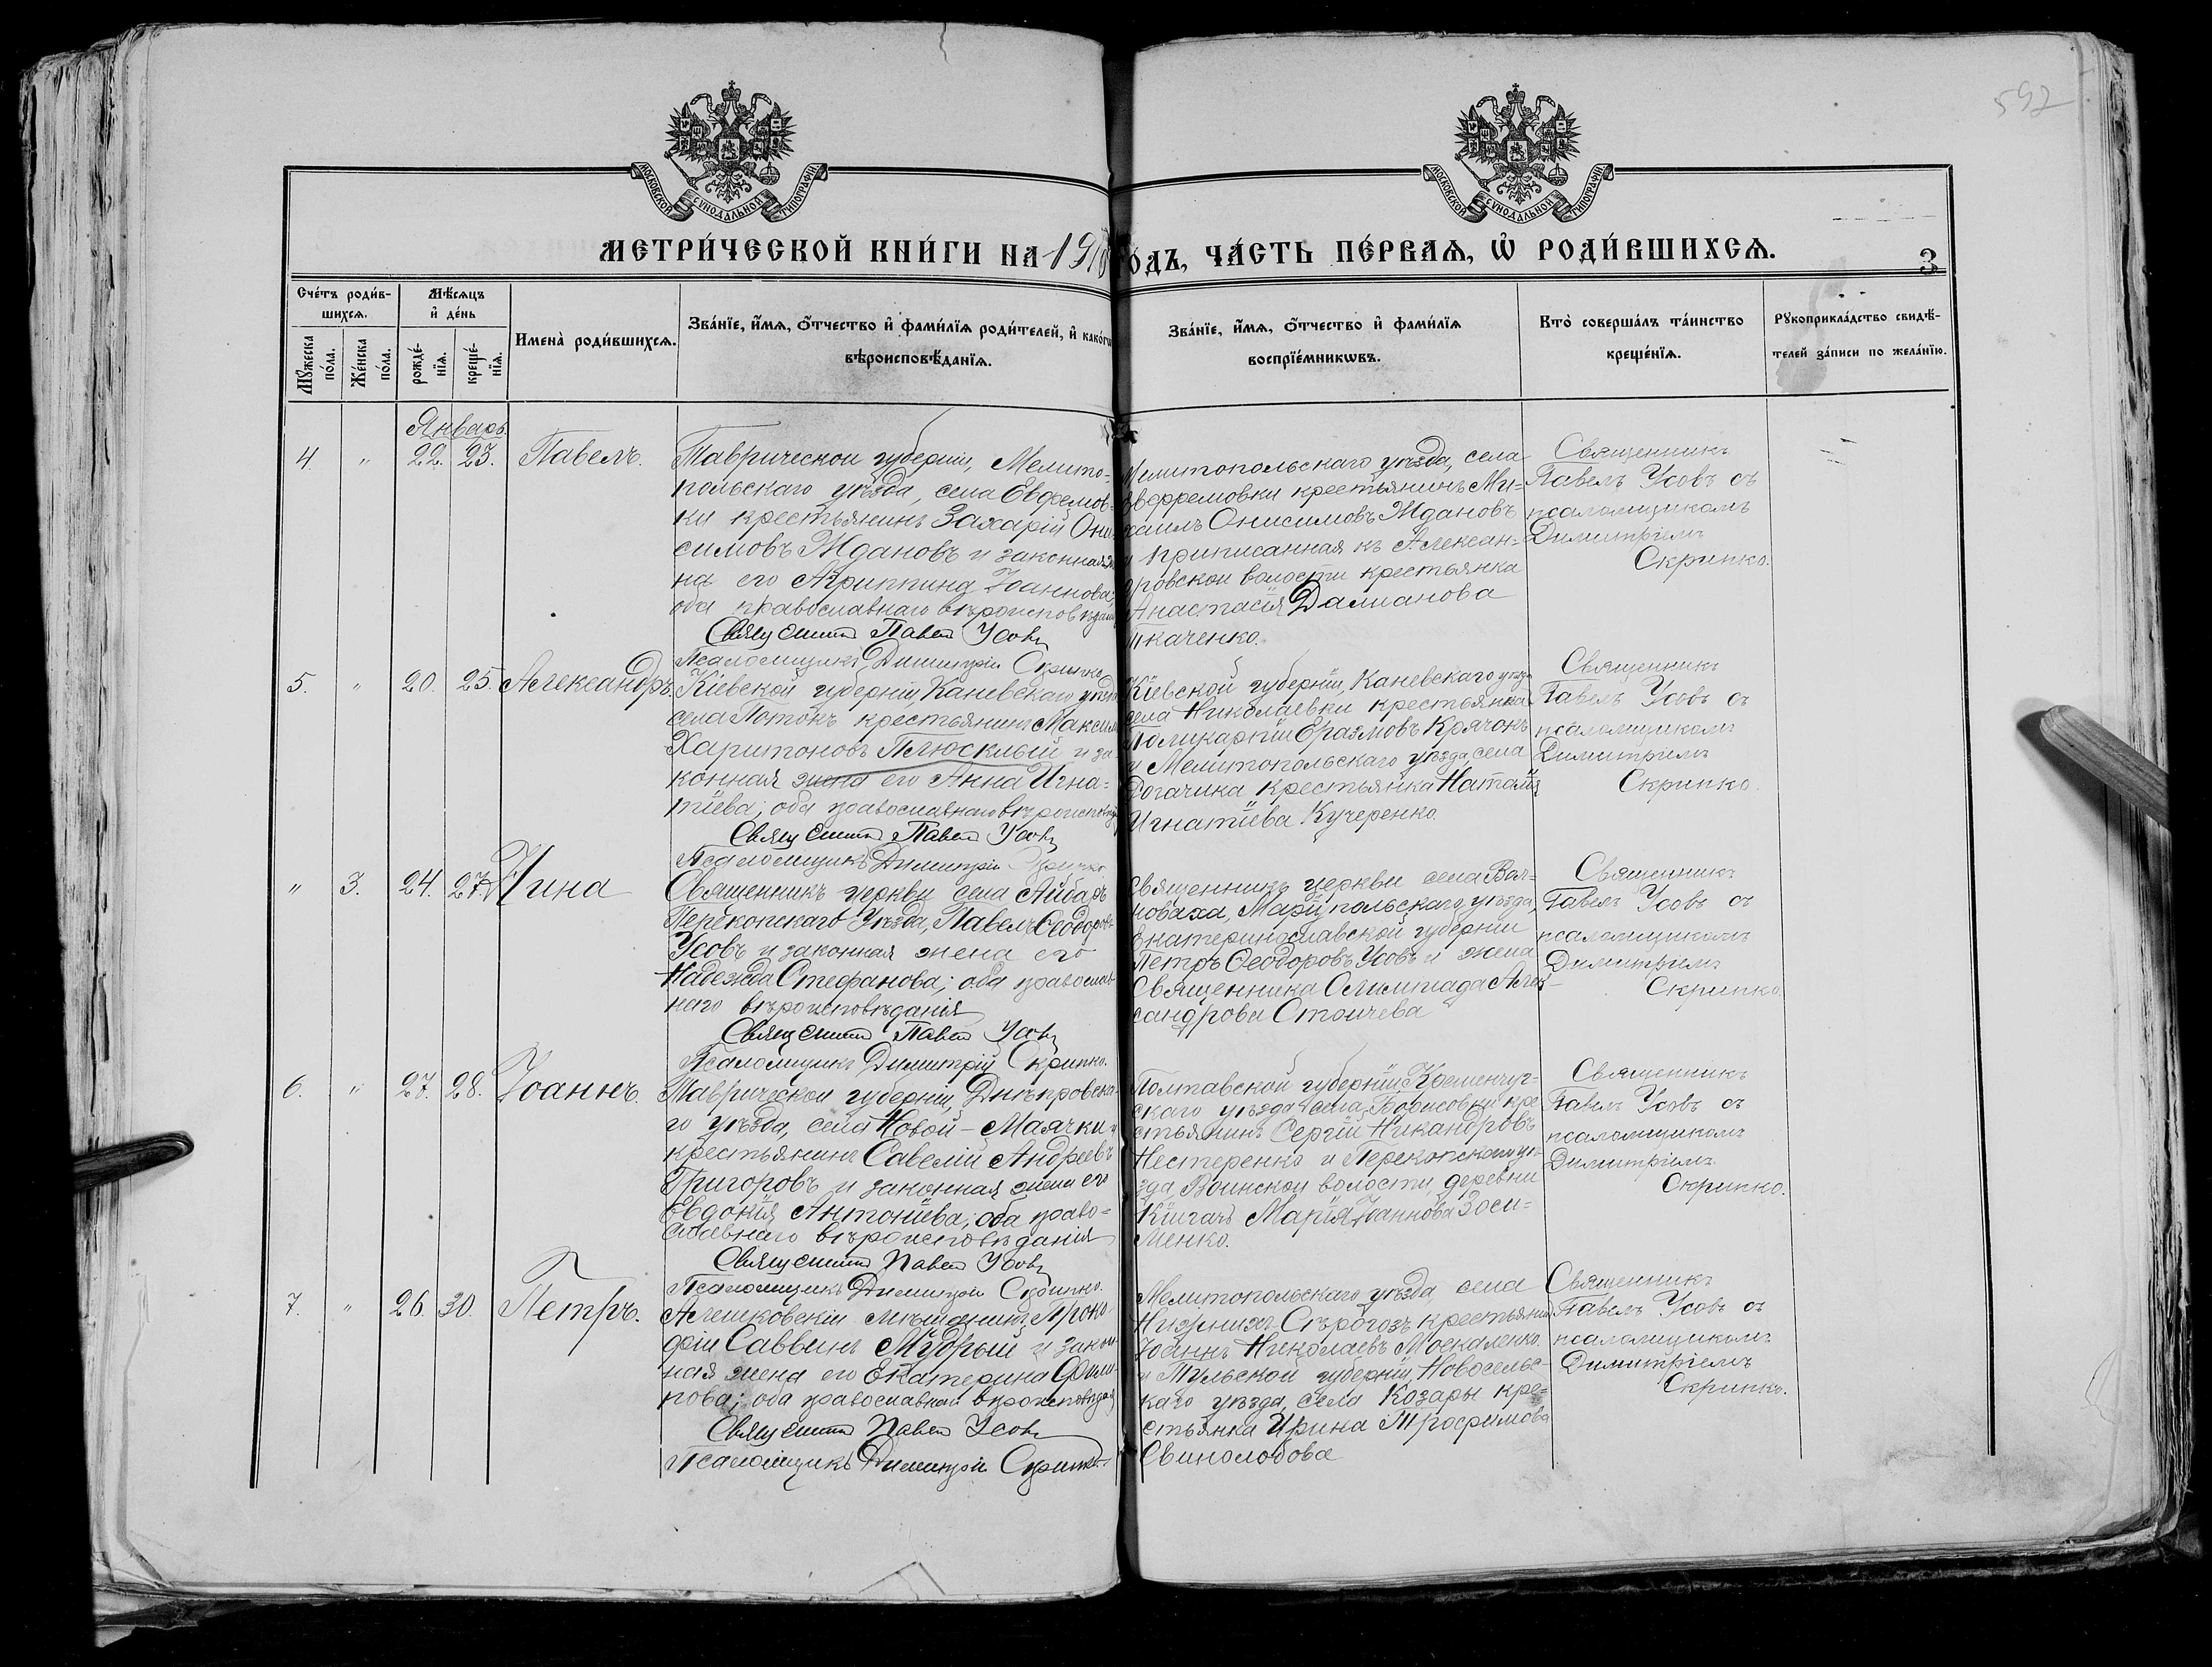 592
МОСКОВСКОЙ СУНОДАЛЬНОЙ ТИПОГРАФІИ
МОСКОВСКОЙ СУНОДАЛЬНОЙ ТИПОГРАФІИ
МЕТРИ́ЧЕСКОЙ КНИ́ГИ НА 1910 ГО́ДЪ, ЧА́СТЬ ПЕ́РВАѦ, Ѡ҆ РОДИ́ВШИХСѦ.
3
Сче́тъ роди́в-
шихсѧ.
Мꙋ́жеска по́ла.
Же́нска по́ла.
Мѣ́сѧцъ
и҆ де́нь
рожде́-
нїѧ.
креще́-
нїѧ.
Имена̀ роди́вшихсѧ.
Зва́нїе, и҆́мѧ, ѻ҆́тчество и҆ фами́лїѧ роди́телей, и҆ како́гѡ
вѣроисповѣ́данїѧ.
Зва́нїе, и҆́мѧ, ѻ҆́тчество и҆ фами́лїѧ
воспрїе́мникѡвъ.
Кто̀ соверша́лъ та́инство
креще́нїѧ.
Рꙋкоприкла́дство свидѣ́-
телей за́писи по жела́нїю.
Январь.
4. " 22. 23. Павелъ.
Таврической губерніи, Мелито-
польскаго уѣзда, села Евфремов-
ки крестьянинъ Захарій Они-
симовъ Ждановъ и законная же-
на его Агриппина Іоаннова;
оба православнаго вѣроисповѣданія
Священникъ Павелъ Усовъ
Псаломщикъ Димитрій Скрипко
Мелитопольскаго уѣзда, села
Евфремовки крестьянинъ Ми-
хаилъ Онисимовъ Ждановъ
и приписанная къ Алексан-
дровской волости крестьянка
Анастасія Дамианова
Ткаченко.
Священникъ
Павелъ Усовъ съ
псаломщикомъ
Димитріемъ
Скрипко.
5. " 20. 25. Александръ.
Кіевской губерніи, Каневскаго уѣзда
села Потокъ крестьянинъ Максимъ
Харитоновъ Плюсклый и за-
конная жена его Анна Игна-
тіева; оба православнаго вѣроисповѣд.
Священникъ Павелъ Усовъ
Псаломщикъ Димитрій Скрипко
Кіевской губерніи, Каневскаго уѣзда
села Николаевки крестьянинъ
Поликарпій Еразмовъ Крячокъ
и Мелитопольскаго уѣзда, села
Рогачика крестьянка Наталія
Игнатіева Кучеренко.
Священникъ
Павелъ Усовъ съ
псаломщикомъ
Димитріемъ
Скрипко.
" 3. 24. 27. Нина
Священникъ церкви села Айбаръ
Перекопскаго Уѣзда, Павелъ Ѳеодоровъ
Усовъ и законная жена его
Надежда Стефанова; оба православ-
наго вѣроисповѣданія
Священникъ Павелъ Усовъ
Псаломщикъ Димитрій Скрипко.
Священникъ церкви села Вол-
новаха, Маріупольскаго уѣзда,
Екатеринославской губерніи
Петръ Ѳеодоровъ Усовъ и жена
Священника Олимпіада Алек-
сандрова Стоичева
Священникъ
Павелъ Усовъ съ
псаломщикомъ
Димитріемъ
Скрипко.
6. " 27. 28. Іоаннъ.
Таврической губерніи, Днѣпровска-
го уѣзда, села Новой-Маячки
крестьянинъ Савелій Андреевъ
Григоровъ и законная жена его
Евдокія Антоніева; оба право-
славнаго вѣроисповѣданія
Священникъ Павелъ Усовъ
Псаломщикъ Димитрій Скрипко.
Полтавской губерніи, Кременчуг-
скаго уѣзда села Борисовки кре-
стьянинъ Сергій Никандровъ
Нестеренко и Перекопскаго уѣ-
зда, Воинской волости, деревни
Кіигачъ Марія Іоаннова Зоси-
менко.
Священникъ
Павелъ Усовъ съ
псаломщикомъ
Димитріемъ
Скрипко.
7. " 26 30. Петръ.
Алешковскій мѣщанинъ Проко-
фій Саввинъ Мудрый и закон-
ная жена его Екатерина Фили-
пова; оба православнаго вѣроисповѣдан.
Священникъ Павелъ Усовъ
Псаломщикъ Димитрій Скрипко
Мелитопольскаго уѣзда села
Нижнихъ Сѣрогозъ крестьянинъ
Іоаннъ Николаевъ Москаленко
и Тульской губерніи, Новосельс-
каго уѣзда, села Козары кре-
стьянка Ирина Трофимова
Свинолобова
Священникъ
Павелъ Усовъ съ
псаломщикомъ
Димитріемъ
Скрипко.